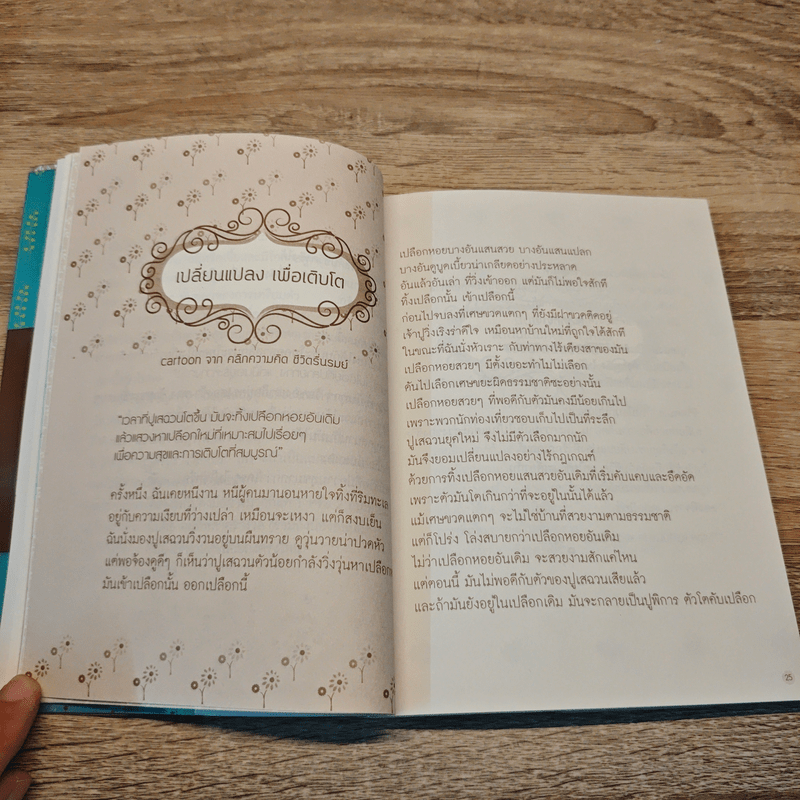 เปลี่ยนแปลง เพื่อเติบโต
cartoon จาก คลิกความคิด ชีวิตรื่นรมย์
“เวลาที่ปูเสฉวนโตขึ้น มันจะทิ้งเปลือกหอยอันเดิม
แล้วแสวงหาเปลือกใหม่ที่เหมาะสมไปเรื่อยๆ
เพื่อความสุขและการเติบโตที่สมบูรณ์”
ครั้งหนึ่ง ฉันเคยหนีงาน หนีผู้คนมานอนหายใจทิ้งที่ริมทะเล
อยู่กับความเงียบที่ว่างเปล่า เหมือนจะเหงา แต่ก็สงบเย็น
ฉันนั่งมองปูเสฉวนวิ่งวนอยู่บนผืนทราย ดูวุ่นวายน่าปวดหัว
แต่พอจ้องดูดีๆ ก็เห็นว่าปูเสฉวนตัวน้อยกำลังวิ่งวุ่นหาเปลือก
มันเข้าเปลือกนั้น ออกเปลือกนี้
เปลือกหอยบางอันแสนสวย บางอันแสนแปลก
บางอันดูบูดเบี้ยวน่าเกลียดอย่างประหลาด
อันแล้วอันเล่า ที่วิ่งเข้าออก แต่มันก็ไม่พอใจสักที
ทิ้งเปลือกนั้น เข้าเปลือกนี้
ก่อนไปจบลงที่เศษขวดแตกๆ ที่ยังมีฝาขวดติดอยู่
เจ้าปูวิ่งเริงร่าดีใจ เหมือนหาบ้านใหม่ที่ถูกใจได้สักที
ในขณะที่ฉันนั่งหัวเราะ กับท่าทางไร้เดียงสาของมัน
เปลือกหอยสวยๆ มีตั้งเยอะทำไมไม่เลือก
ดันไปเลือกเศษขยะผิดธรรมชาติซะอย่างนั้น
เปลือกหอยสวยๆ ที่พอดีกับตัวมันคงมีน้อยเกินไป
เพราะพวกนักท่องเที่ยวชอบเก็บไปเป็นที่ระลึก
ปูเสฉวนยุคใหม่ จึงไม่มีตัวเลือกมากนัก
มันจึงยอมเปลี่ยนแปลงอย่างไร้กฎเกณฑ์
ด้วยการทิ้งเปลือกหอยแสนสวยอันเดิมที่เริ่มคับแคบและอึดอัด
เพราะตัวมันโตเกินกว่าที่จะอยู่ในนั้นได้แล้ว
แม้เศษขวดแตกๆ จะไม่ใช่บ้านที่สวยงามตามธรรมชาติ
แต่ก็โปร่ง โล่งสบายกว่าเปลือกหอยอันเดิม
ไม่ว่าเปลือกหอยอันเดิม จะสวยงามสักแค่ไหน
แต่ตอนนี้ มันไม่พอดีกับตัวของปูเสฉวนเสียแล้ว
และถ้ามันยังอยู่ในเปลือกเดิม มันจะกลายเป็นปูพิการ ตัวโตคับเปลือก
25